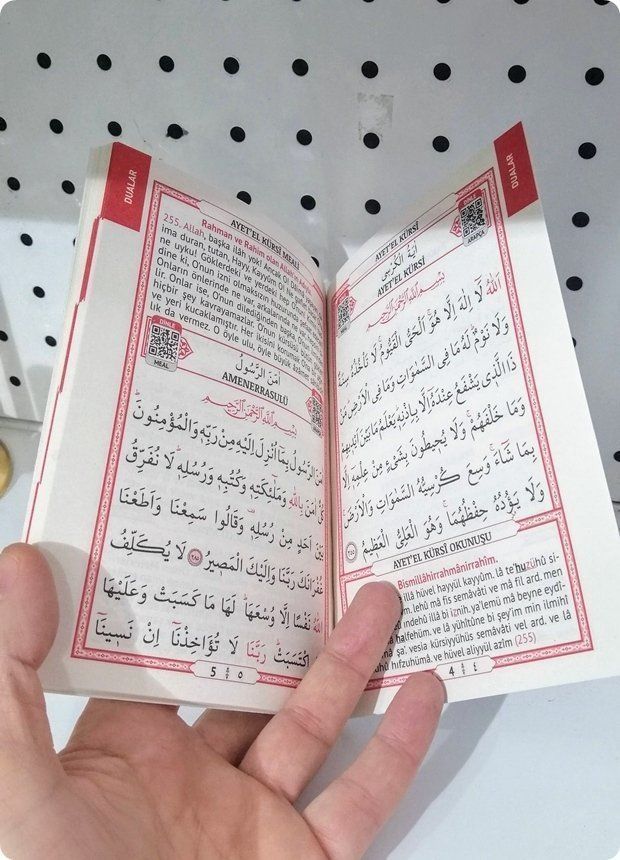 DUALAR
AYET'EL KÜRSİ
اٰيَةُ الْكُرْسِيِّ
AYET'EL KÜRSİ
ARAPÇA
بِسْمِ اللّٰهِ الرَّحْمٰنِ الرَّحِيمِ
اَللّٰهُ لَٓا اِلٰهَ اِلَّا هُوَۚ اَلْحَيُّ الْقَيُّومُۚ لَا تَأْخُذُهُ سِنَةٌ
وَلَا نَوْمٌۜ لَهُ مَا فِي السَّمٰوَاتِ وَمَا فِي الْاَرْضِۜ مَنْ
ذَا الَّذِي يَشْفَعُ عِنْدَهُٓ اِلَّا بِاِذْنِهِۜ يَعْلَمُ مَا بَيْنَ اَيْدِيهِمْ
وَمَا خَلْفَهُمْۚ وَلَا يُحِيطُونَ بِشَيْءٍ مِنْ عِلْمِهِٓ اِلَّا
بِمَا شَٓاءَۚ وَسِعَ كُرْسِيُّهُ السَّمٰوَاتِ وَالْاَرْضَۚ
وَلَا يَؤُ۫دُهُ حِفْظُهُمَاۚ وَهُوَ الْعَلِيُّ الْعَظِيمُ ﴿٢٥٥﴾
AYET'EL KÜRSİ OKUNUŞU
Bismillâhirrahmânirrahîm.
illâ hüvel hayyül kayyûm, lâ te'huzühû si-
lehû mâ fis semâvâti ve mâ fil ard. men
indehû illâ bi iznih. ya'lemü mâ beyne eydî-
halfehüm. ve lâ yühîtûne bi şey'im min ilmihî
şa'. vesia kürsiyyühüs semâvâti vel ard. ve lâ
hıfzuhümâ. ve hüvel aliyyül azîm (255)
4 ٤
DUALAR
AYET'EL KÜRSİ MEALİ
Rahman ve Rahim olan Allah'ın Adıyla
255. Allah, başka ilâh yok! Ancak O! Da-
ima duran, tutan, Hayy, Kayyûm O! Ne
ne uyku! Göklerdeki ve yerdeki hep O'nun!
dine ki, O'nun izni olmaksızın huzurunda şefaat
Onların önlerinde ne var, arkalarında ne varsa
lir. Onlar ise, O'nun dilediğinden başka ilminden
hiçbir şey kavrayamazlar. O'nun Kürsîsi,
ve yeri kucaklamıştır. Her ikisini korumak
lık da vermez. O öyle ulu, öyle büyük
DİNLE
MEAL
اٰمَنَ الرَّسُولُ
AMENERRASULÜ
بِسْمِ اللّٰهِ الرَّحْمٰنِ الرَّحِيمِ
اٰمَنَ الرَّسُولُ بِمَٓا اُنْزِلَ اِلَيْهِ مِنْ رَبِّهِ وَالْمُؤْمِنُونَۜ
كُلٌّ اٰمَنَ بِاللّٰهِ وَمَلٰٓئِكَتِهِ وَكُتُبِهِ وَرُسُلِهِۜ لَا نُفَرِّقُ
بَيْنَ اَحَدٍ مِنْ رُسُلِهِ۠ وَقَالُوا سَمِعْنَا وَاَطَعْنَا
غُفْرَانَكَ رَبَّنَا وَاِلَيْكَ الْمَصِيرُ ﴿٢٨٥﴾ لَا يُكَلِّفُ
اللّٰهُ نَفْسًا اِلَّا وُسْعَهَاۜ لَهَا مَا كَسَبَتْ وَعَلَيْهَا
مَا اكْتَسَبَتْۜ رَبَّنَا لَا تُؤَاخِذْنَٓا اِنْ نَسِينَٓا
5 ٥